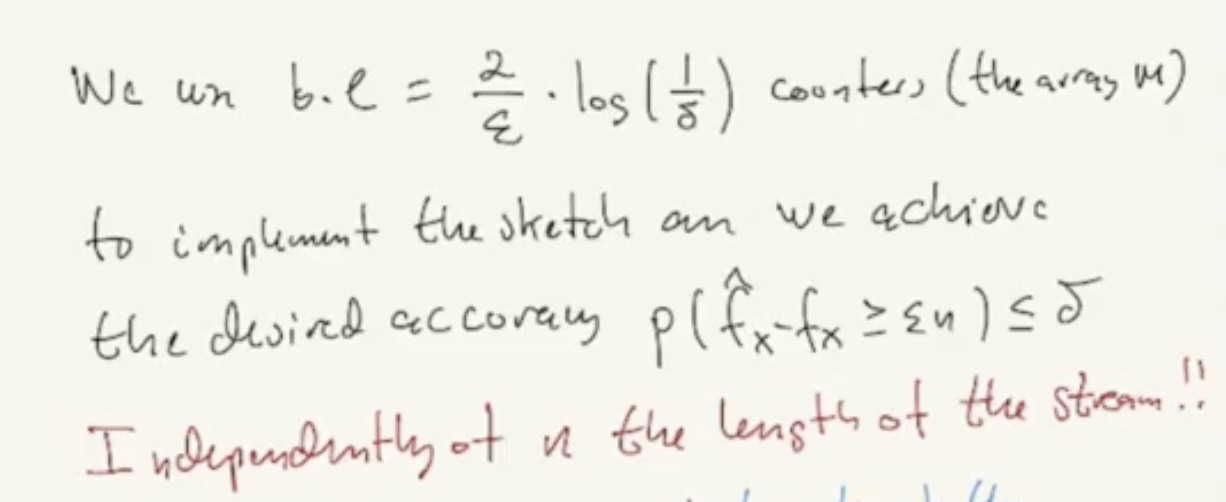 We un b.l = 2/ε · log(1/δ) counters (the array M)
to implement the sketch an we achieve
the desired accuracy p(f̂x-fx ≥ εn) ≤ δ
Independently of n the length of the stream!!